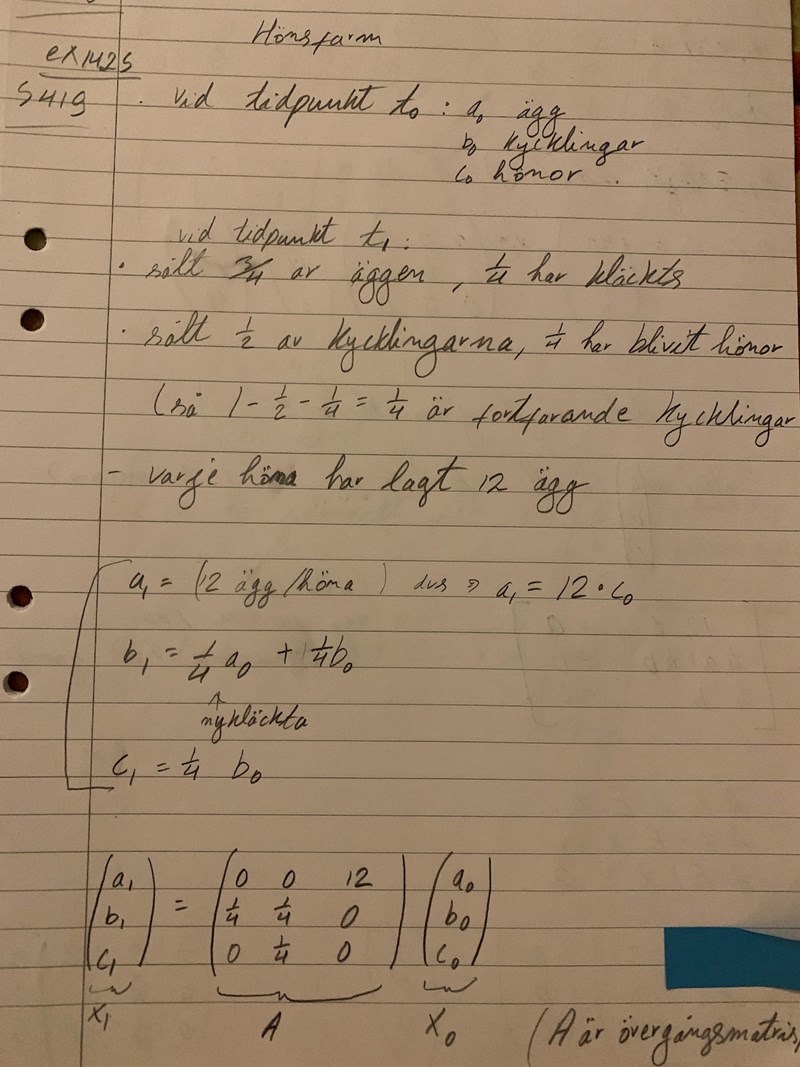 Hönsfarm
ex 1425
S419
. vid tidpunkt t₀ : a₀ ägg
b₀ kycklingar
c₀ hönor .
vid tidpunkt t₁ :
· sålt 3/4 av äggen , 1/4 har kläckts
· sålt 1/2 av kycklingarna, 1/4 har blivit hönor
(så 1 - 1/2 - 1/4 = 1/4 är fortfarande kycklingar
- varje höna har lagt 12 ägg
a₁ = (12 ägg/höna ) dvs ⇒ a₁ = 12 · c₀
b₁ = 1/4 a₀ + 1/4 b₀
↑
nykläckta
c₁ = 1/4 b₀
(a₁) = (0 0 12) (a₀)
(b₁) = (1/4 1/4 0) (b₀)
(c₁) = (0 1/4 0) (c₀)
X₁ A X₀ (A är övergångsmatris,